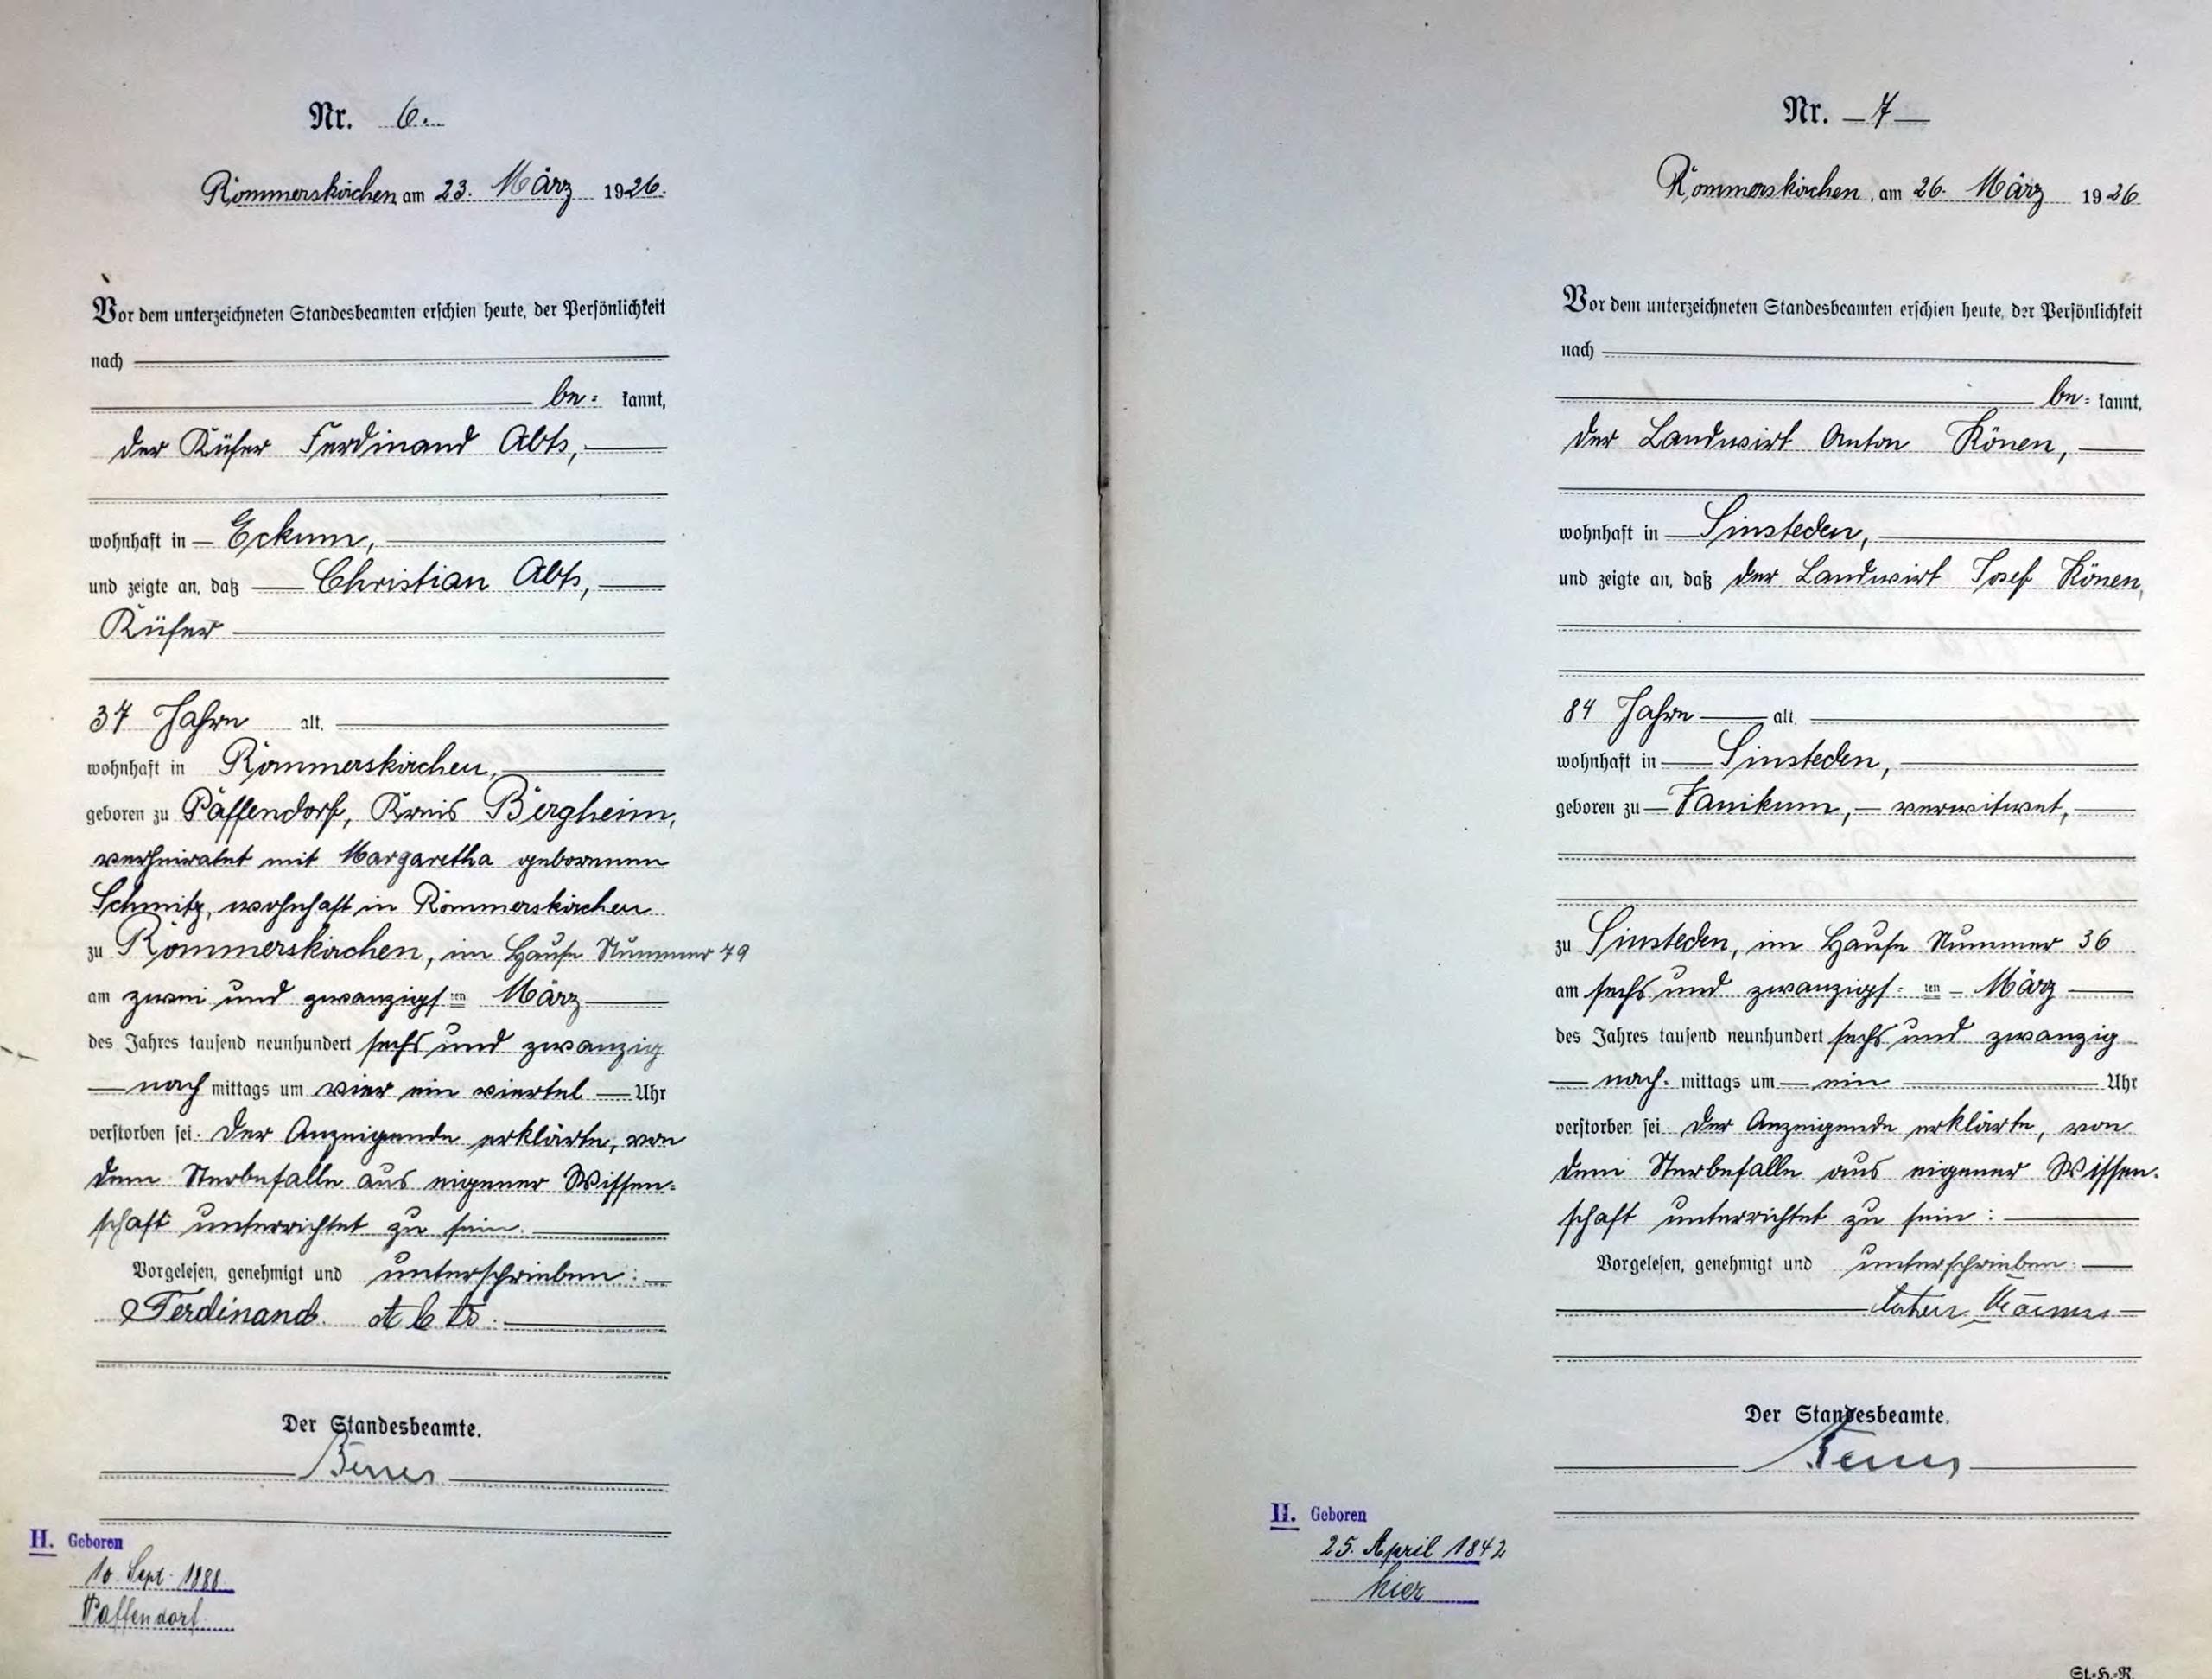 Nr. 6.
Rommerskirchen am 23. März 1926.
Vor dem unterzeichneten Standesbeamten erschien heute, der Persönlichkeit
nach
be= kannt,
der Küfer Ferdinand Abts,
wohnhaft in Eckum,
und zeigte an, daß Christian Abts,
Küfer
37 Jahre alt,
wohnhaft in Rommerskirchen,
geboren zu Paffendorf, Kreis Bergheim,
verheiratet mit Margaretha geborenen
Schmitz, wohnhaft in Rommerskirchen
zu Rommerskirchen, im Hause Nummer 79
am zwei und zwanzigsten März
des Jahres tausend neunhundert sechs und zwanzig
nach mittags um vier ein viertel Uhr
verstorben sei. Der Anzeigende erklärte, von
dem Sterbefalle aus eigener Wissen=
schaft unterrichtet zu sein.
Vorgelesen, genehmigt und unterschrieben:
Ferdinand Abts.
Der Standesbeamte.
H. Geboren
10. Sept. 1888
Paffendorf
Nr. 7
Rommerskirchen, am 26. März 1926
Vor dem unterzeichneten Standesbeamten erschien heute, der Persönlichkeit
nach
be= kannt,
der Landwirt Anton Könen,
wohnhaft in Sinsteden,
und zeigte an, daß der Landwirt Josef Könen,
84 Jahre alt,
wohnhaft in Sinsteden,
geboren zu Vanikum, verwitwet,
zu Sinsteden, im Hause Nummer 36
am sechs und zwanzigs= ten März
des Jahres tausend neunhundert sechs und zwanzig
nach= mittags um ein Uhr
verstorben sei. Der Anzeigende erklärte, von
dem Sterbefalle aus eigener Wissen=
schaft unterrichtet zu sein:
Vorgelesen, genehmigt und unterschrieben:
Anton Könen
Der Standesbeamte.
H. Geboren
25. April 1842
hier
St.-H.-R.